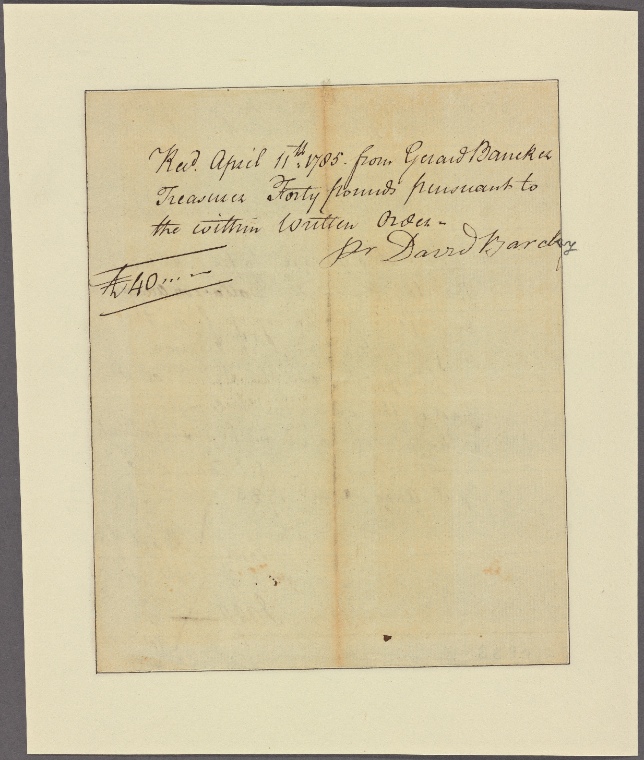 Recd. April 11th. 1785. from Gerard Bancker
Treasurer Forty pounds pursuant to
the within Written Order-
pr David Barclay
£40...-